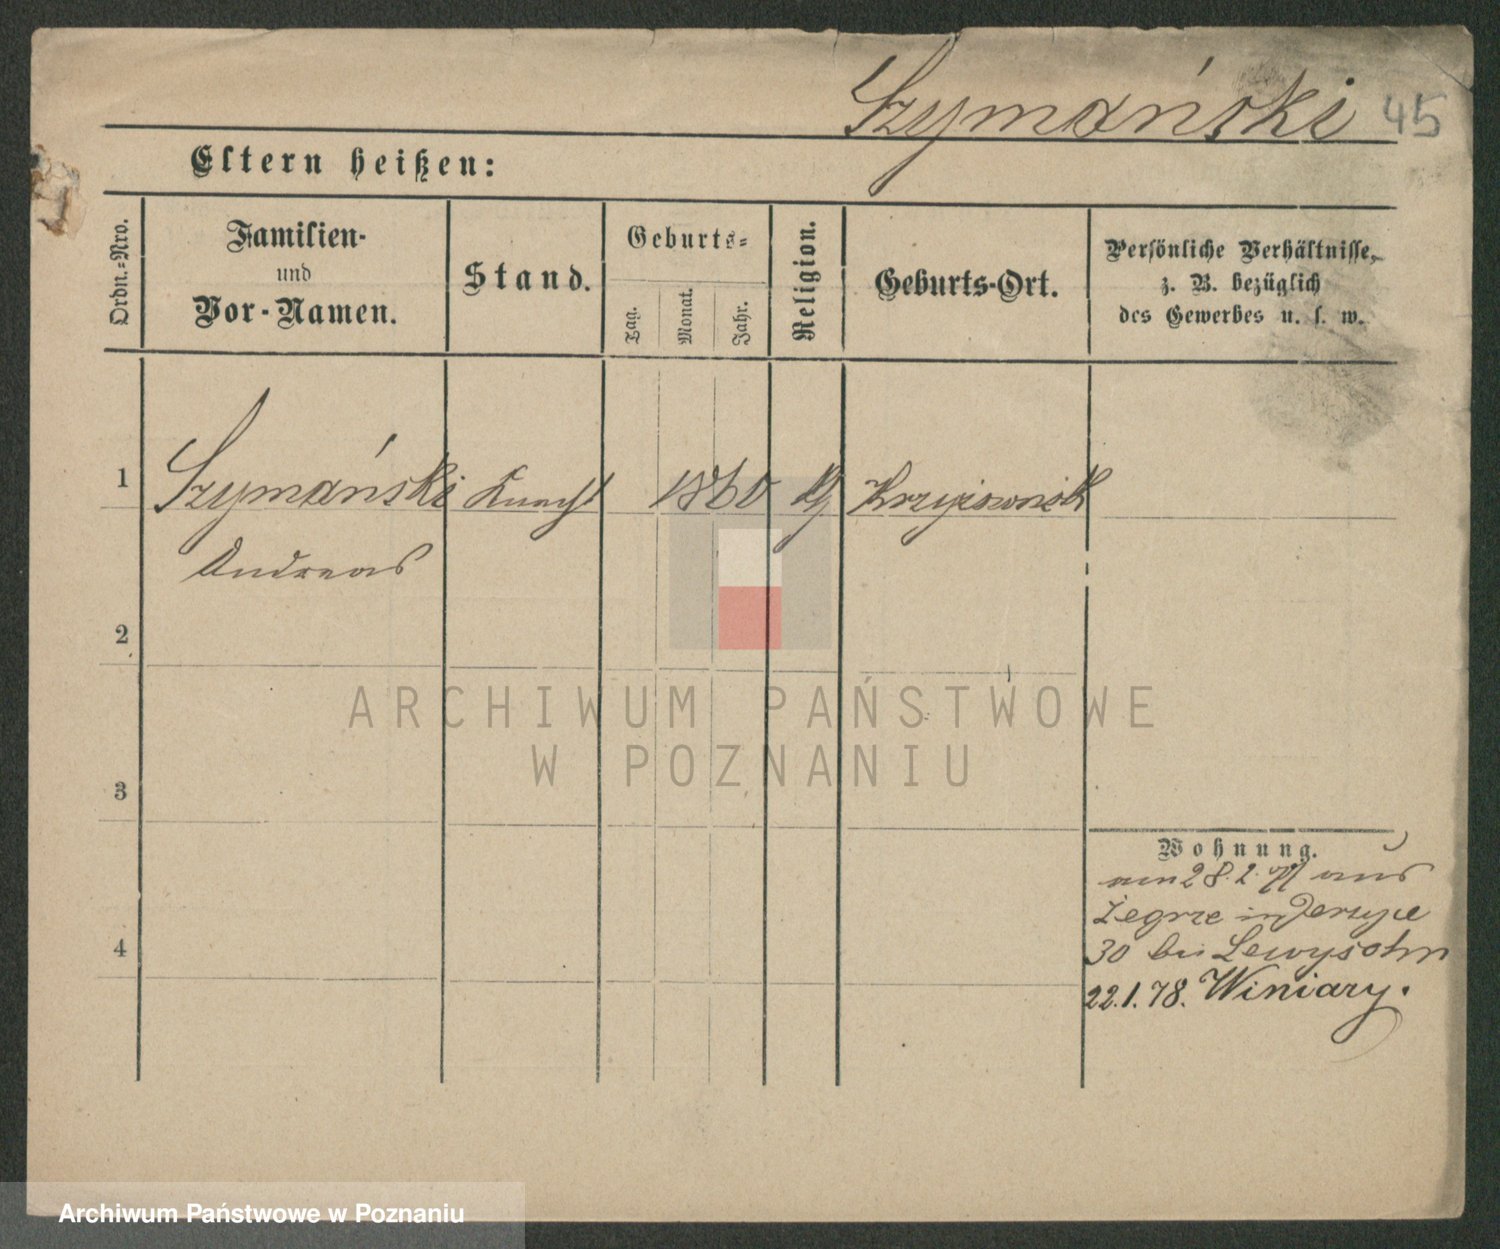 Szymański 45
Eltern heißen:
Ordn.-Nro.
Familien-
und
Vor-Namen.
Stand.
Geburts-
Tag.
Monat.
Jahr.
Religion.
Geburts-Ort.
Persönliche Verhältnisse,
z. B. bezüglich
des Gewerbes u. s. w.
1 Szymański Knecht 1860 Krzyżownik
Andreas
2
3
4
ARCHIWUM PAŃSTWOWE
W POZNANIU
Wohnung.
am 28.2.77 aus
Żegrze in Jersyce
30 bei Lewysohn
22.1.78. Winiary.
Archiwum Państwowe w Poznaniu